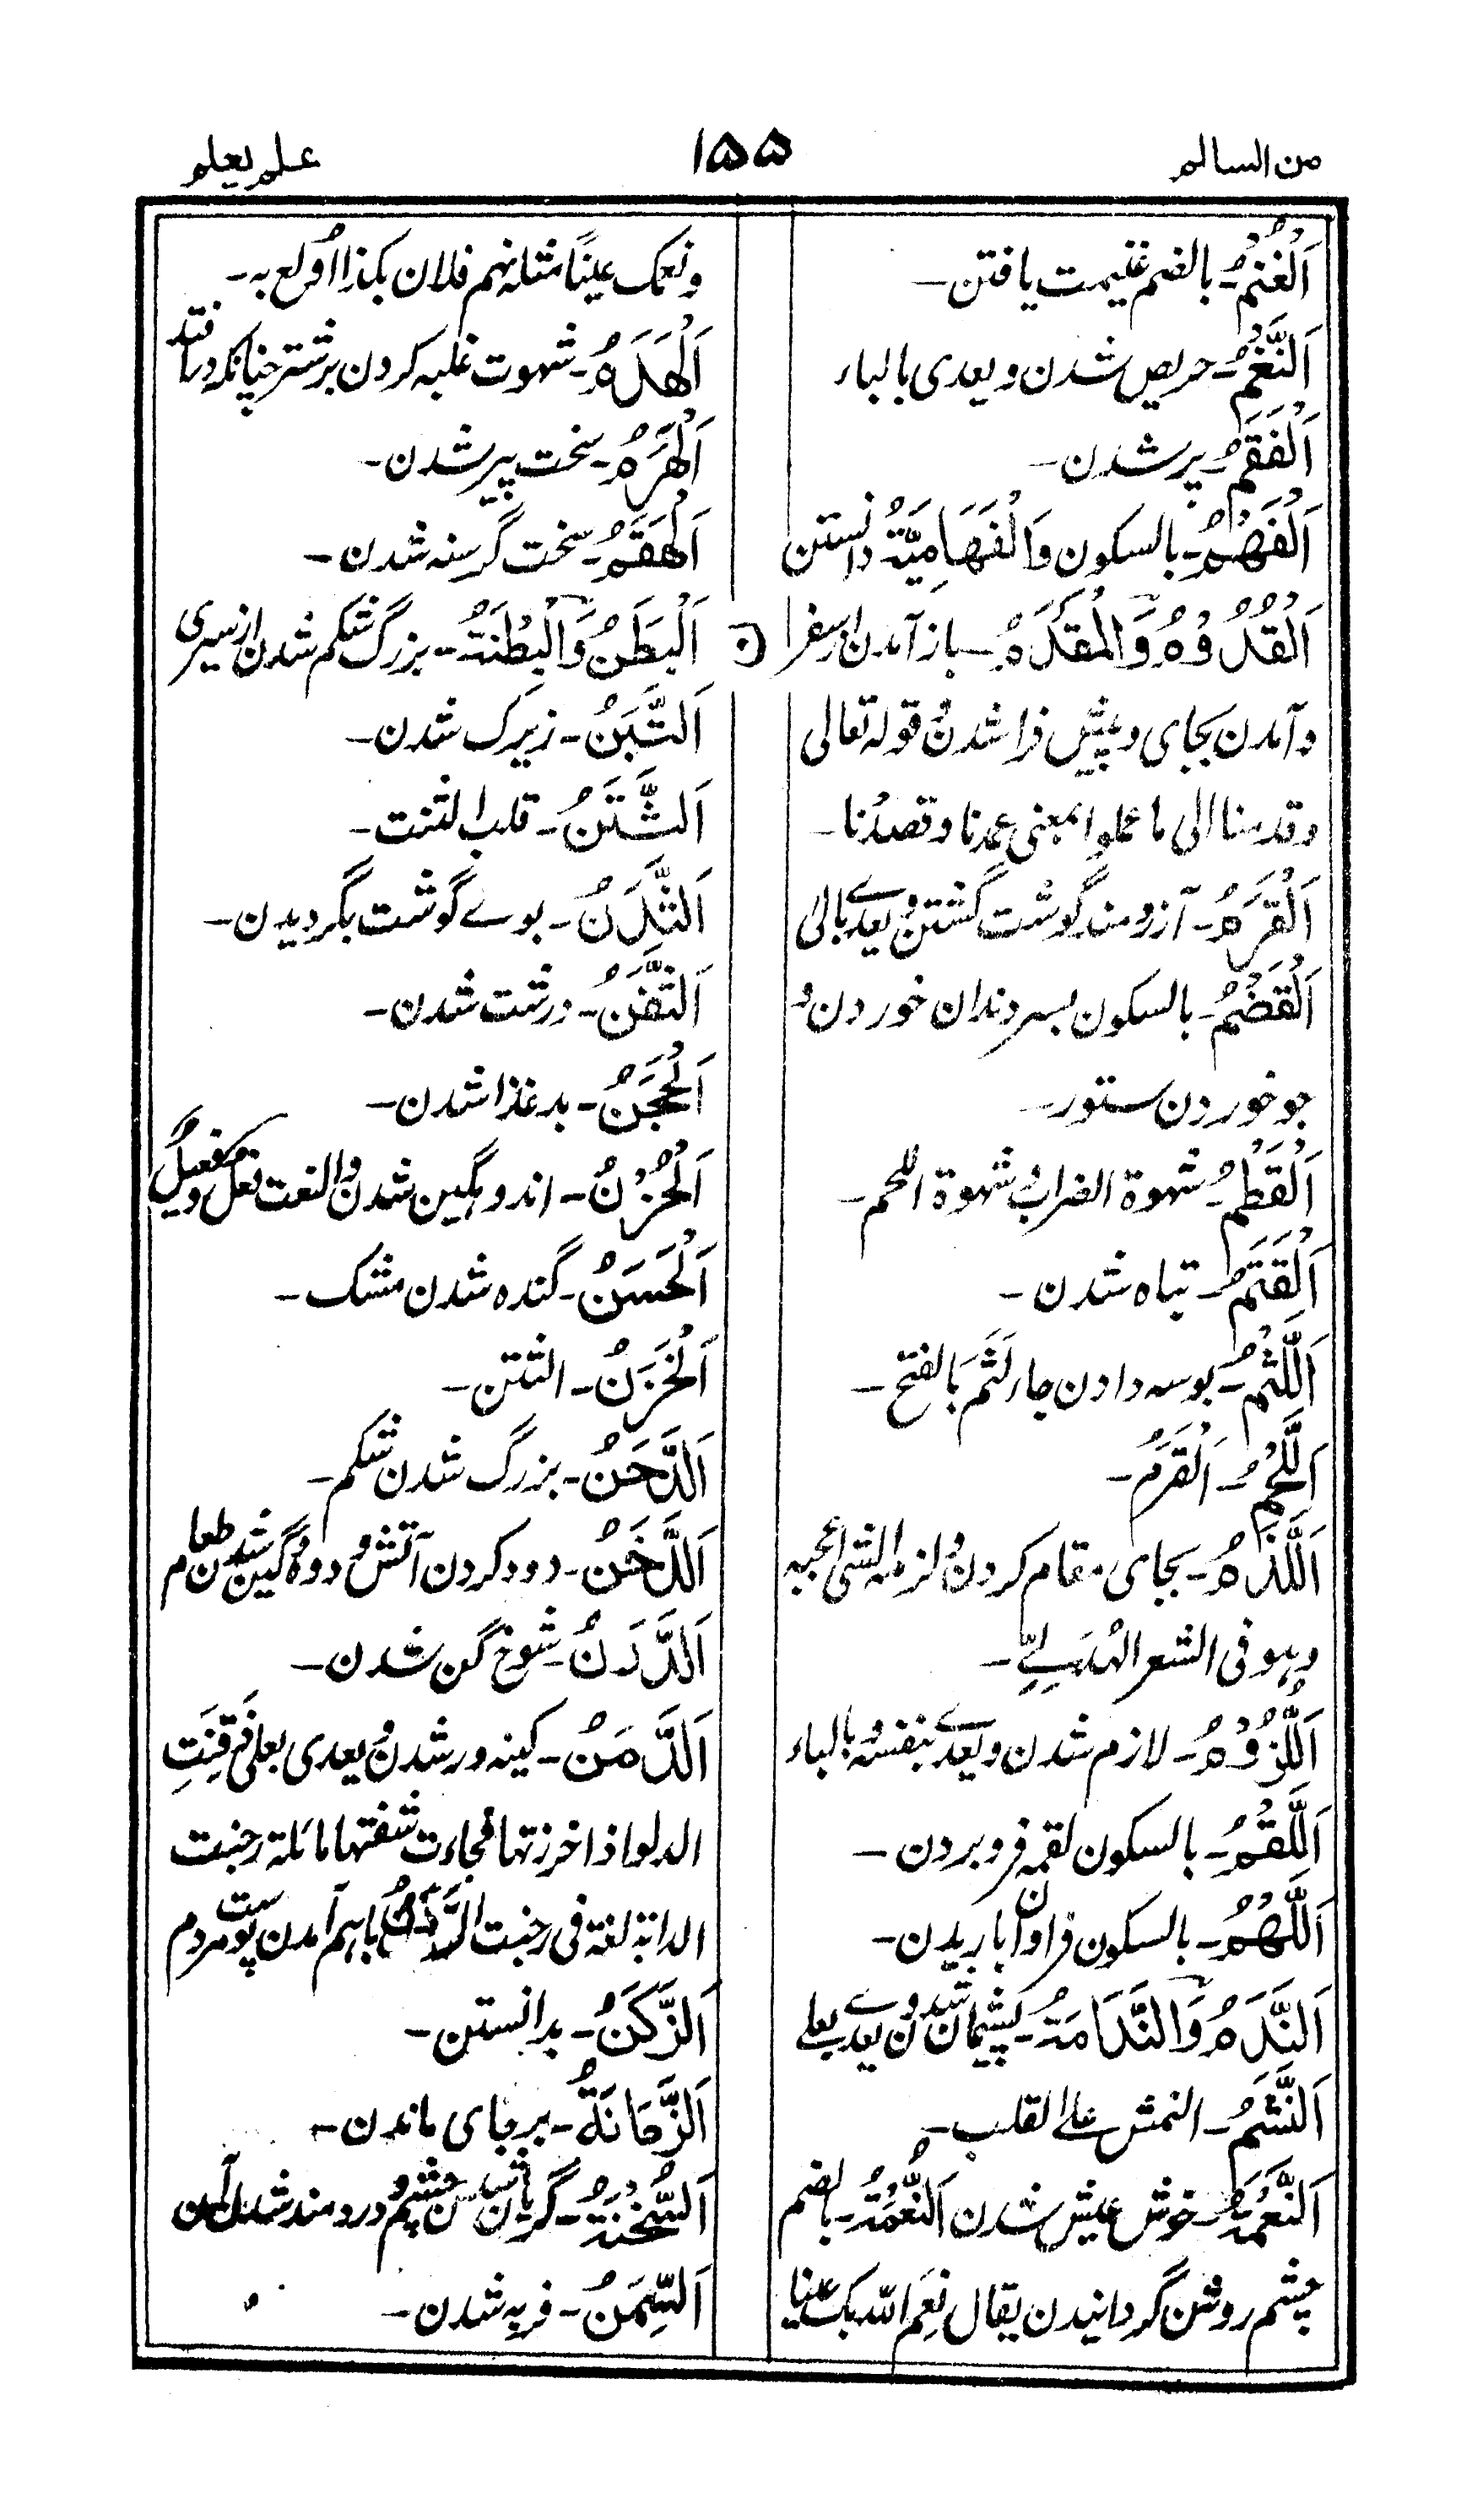 من السالم
۱۵۵
علم یعلم
اَلْغُنْمُ ـ بالضم غنیمت یافتن ـ
اَلنَّغَمُ ـ حریص شدن و یعدی بالباء
اَلْفَقَمُ ـ پر شدن ـ
اَلْفَهْمُ ـ بالسکون وَالْفَهَامِيَّةُ دانستن
اَلْقُدُوْمُ وَالْمَقْدَمُ ـ باز آمدن از سفر
و آمدن بجای و پیش فرا شدن قوله تعالی
و قدمنا الی ما عملوا بمعنی عمدنا و قصدنا ـ
اَلْقَرَمُ ـ آرزومند گوشت گشتن و یعدے بالی
اَلْقَضْمُ ـ بالسکون بسر دندان خوردن و
جو خوردن ستور ـ
اَلْقَطَمُ ـ شهوة الضراب و شهوة اللحم ـ
اَلْقَتَمُ ـ تباه شدن ـ
اَللَّثْمُ ـ بوسه دادن جاء لَثَمَ بالفتح ـ
اَللَّحَمُ ـ اَلْقَرَمُ ـ
اَللَّذَمُ ـ بجای مقام کردن و لزمه الشی اعجبه
و هو فی الشعر الهذلیّ ـ
اَللُّزُوْمُ ـ لازم شدن و یعدے بنفسه و بالباء
اَللَّقْمُ ـ بالسکون لقمه فرو بردن ـ
اَللَّهْمُ ـ بالسکون فراوان باریدن ـ
اَلنَّدَمُ وَالنَّدَامَةُ ـ پشیمان شدن و یعدے بعلی
اَلنَّشَمُ ـ النمش علی القلب ـ
اَلنَّعْمَةُ ـ خوش عیش شدن اَلنُّعْمَةُ ـ بالضم
چشم روشن گردانیدن یقال نَعِمَ الله بک عینا
و نعمک عینًا مثله نهم فلان بکذا اُولع به ـ
اَلْهَدَمُ ـ شهوت غلبه کردن بر شتر چنانکه در افتد
اَلْهَرَمُ ـ سخت پیر شدن ـ
اَلْهَقَمُ ـ سخت گرسنه شدن ـ
ن اَلْبَطَنُ وَالْبِطْنَةُ ـ بزرگ شکم شدن از سیری
اَلتَّبَنُ ـ زیرک شدن ـ
اَلثَّتَنُ ـ قلب الثنت ـ
اَلثَّدَنُ ـ بوے گوشت بگردیدن ـ
اَلثَّفَنُ ـ درشت شدن ـ
اَلْحَجَنُ ـ بد غذا شدن ـ
اَلْحُزْنُ ـ اندوهگین شدن و النعت فعل و فعیل
اَلْحَسَنُ ـ گنده شدن مشک ـ
اَلْخَزَنُ ـ النتن ـ
اَلدَّحَنُ ـ بزرگ شدن شکم ـ
اَلدَّخَنُ ـ دود کردن آتش و دودگین شدن طعام
اَلدَّرَنُ ـ شوخ گن شدن ـ
اَلدَّمَنُ ـ کینه ور شدن و یعدی بعلی
الدلو اذا خرزتها فجاءت شفتها مائلة رجنت
الدابة لغة فی رجنت باهم آمدن پوست مردم
اَلزَّكَنُ ـ بدانستن ـ
اَلزَّمَانَةُ ـ بر جای ماندن ـ
اَلسُّخْنَةُ ـ گریان شدن چشم و دردمند شدن آن
اَلسِّمَنُ ـ فربه شدن ـ